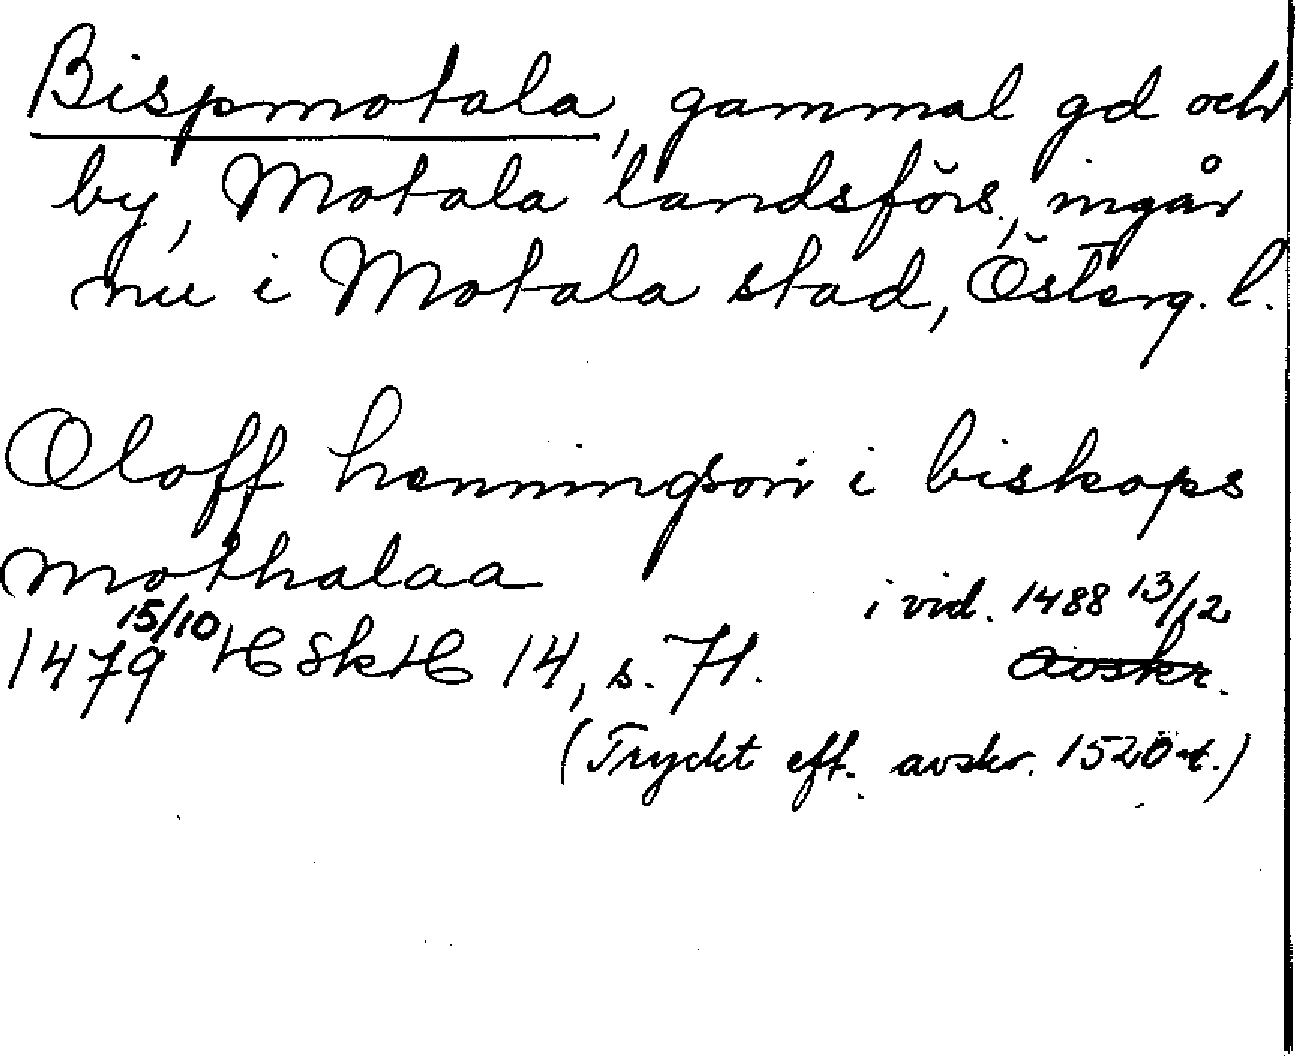 Bispmotala, gammal gd och
by, Motala landsförs., ingår
nu i Motala stad, Österg. l.
Oloff henningson i biskops
mothalaa
i vid. 1488 13/12
1479 15/10 HSkH 14, s. 71.
avskr.
(Tryckt eft. avskr. 1520-t.)